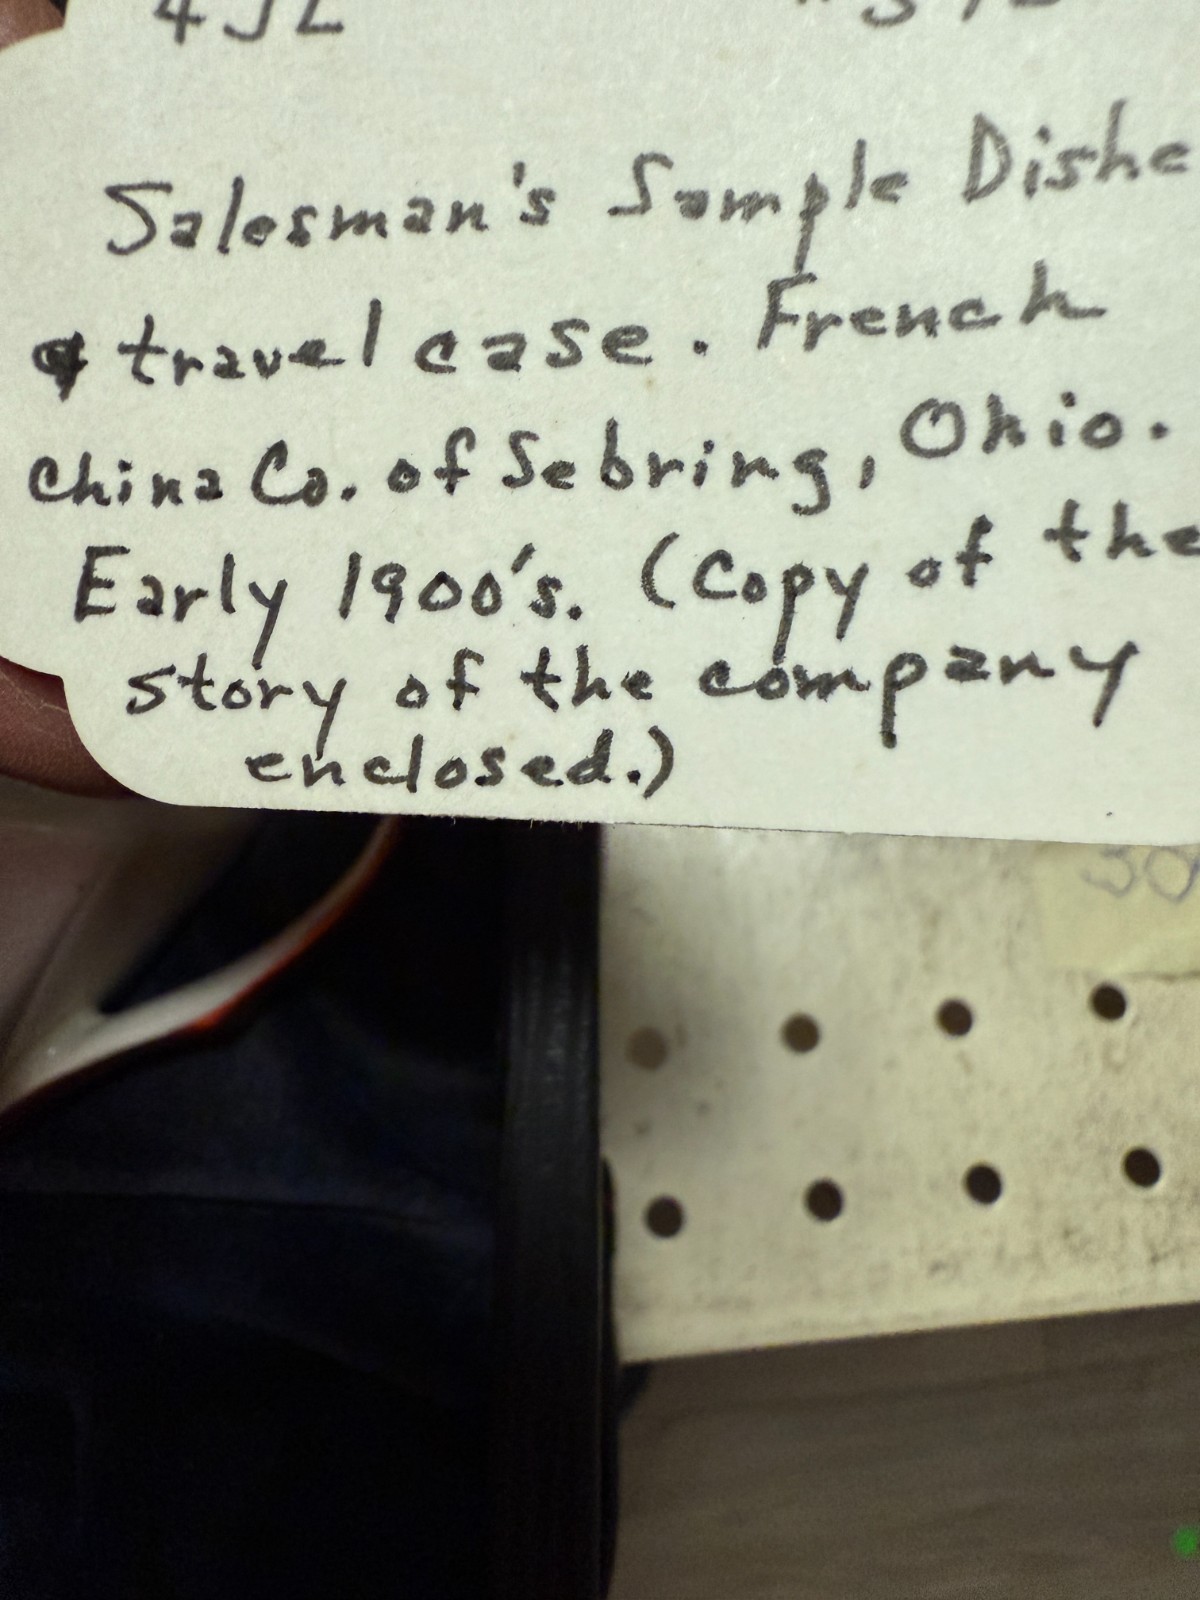 Salesman's Sample Dishe
& travel case. French
China Co. of Sebring, Ohio.
Early 1900's. (Copy of the
story of the company
enclosed.)
30